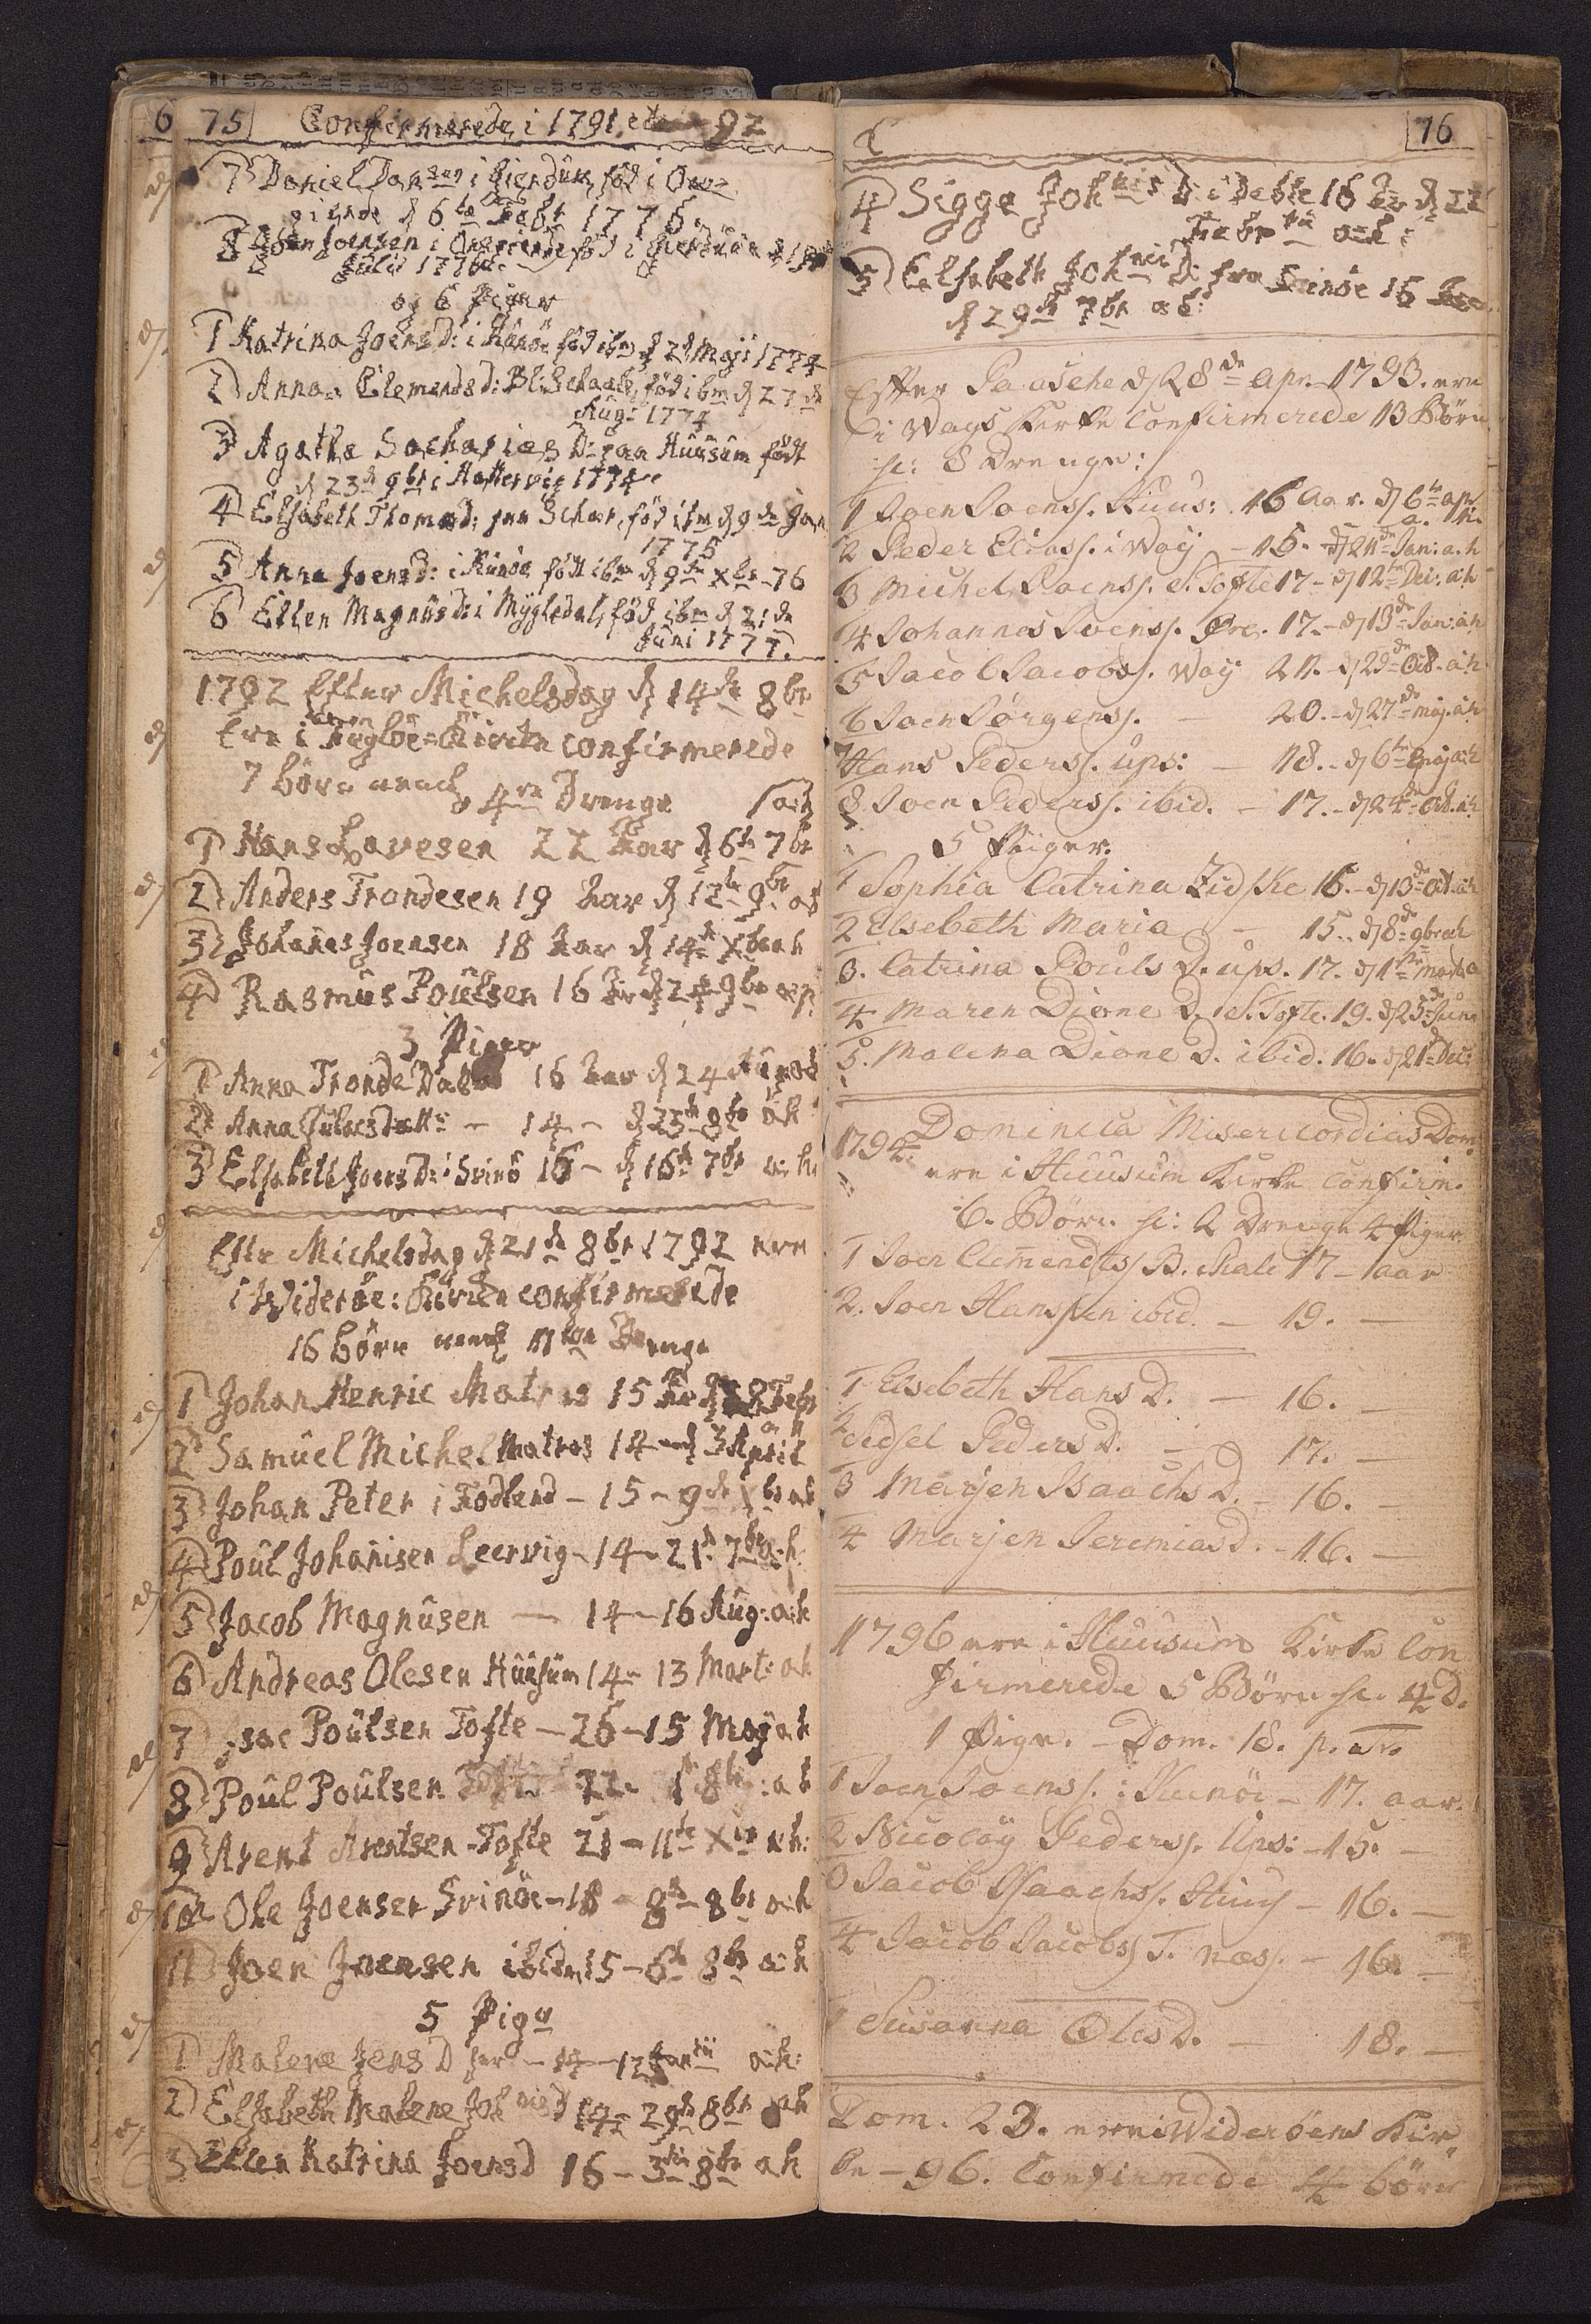 6 75 Confirmerede i 1791 et 92
7 Daniel Dansen i Gierdum, fød i Ore
gierde d 6te Febr 1776.
8 Joen Joensen i Øregierde fød i Gierdum d 19
Julii 1776.
og 6 Piger
1 Katrina Joensd: i Kunöe fød ibm d 28 Maji 1774
2 Anna Clemendsd: Bl: Schaale, fød ibm d 27de
Aug: 1774
3 Agatha Sacharies D: paa Huusum født
d 23d 9br i Hattervig 1774
4 Elsabeth Thomasd: paa Schaar, fød ibm d 9de Jan
1775
5 Anna Joensd: i Kunöe født ibm d 9de Xbr 76
6 Ellen Magnusd: i Mygledal, fød ibm d 21de
Juni 1777.
1792 Efter Michelsdag d 14de 8br
Ere i Fugløe Kircke confirmerede
7 börn nemlig
4re Drenge
1 Hans Lavesen 22 Aar d 6te 7br
2 Anders Trondesen 19 Aar d 12te 9br ah
3 Johanes Joensen 18 Aar d 14de Xbr ah
4 Rasmus Poulsen 16 Aar d 24 9br
3 Piger
1 Anna Tronde Datter 16 Aar d 24
2 Anna Jülesdatt: - 14 - d 25de 9br ah
3 Elsabeth Joensd: i Svinö 16 - d 16de 7br ah
Efter Michelsdag d 21de 8br 1792 ere
i Wideröe: Kircken confirmerede
16 börn neml 11lve Drenge
1 Johan Henric Matras 15 Aar Febr
2 Samuel Michel Matras 14 - d 3 April
3 Johan Peter i Todland - 15 - 9de Xbr ah
4 Poul Johanisen Leervig - 14 - 21de 7br ah:
5 Jacob Magnusen - 14 - 16 Aug: ah
6 Andreas Olesen Huusum 14 - 13 Mart: ah
7 Isac Poulsen Tofte - 26 - 15 May ah
8 Poul Poulsen Tofte 22 - 1 8br: ah
9 Arent Arentsen Tofte 21 - 11te Xbr ah:
10 Ole Joensen Svinöe - 18 - 8de 8br ah
11 Joen Joensen ibidm 15 - 6te 8br ah
5 Piger
1 Malene Jens D - 14 - 12 Janrii ah:
2 Elsbeth Malene Joh 14 - 29de 8br ah
3 Ellen Katrina Joensd 16 - 3die 8br ah
76
4 Sigga Joh D: i Deble 16 Aar d 22
Febr
5 Elsebeth Joh D: fra Svinöe 15 Aar
d 29de 7br ah:
Efter Paasche d 28de apr. 1793. ere
i Wags Kirke Confirmerede 13 Børn
sc: 8 Drenge:
1 Joen Joenss. Huus: 16 Aar. d 6te apr
a. h.
2 Peder Eliass. i Waag - 15. - d 21de Jan: a.h
3 Michel Joenss. S. Tofte 17 - d 12te Dec: ah
4 Johannes Joenss. Øre. 17. - d 13de Jan: ah
5 Jacob Jacobss. Wag 21. - d 29de Oct. ah
6 Joen Jörgenss. - 20. - d 27de maj. ah
7 Hans Pederss. Ups: - 18. - d 6te maj ah
8 Joen Pederss. ibid. - 17. - d 24de Oct. ah
5 Piiger.
1 Sophia Catrina Zidske 16. - d 13de Oct. ah
2 Elsebeth Maria - 15. - d 8de 9br ah
3. Catrina Pouls D. Ups. 17. d 1ste Mart. a
4 Maren Dione D. S. Tofte. 19. d 25de Junii
5. Malena Dione D. ibid. 16. d 21de Dec:
1794. Dominica Misericordias Dom:
ere i Huusum Kirke Confirm.
6. Børn sc: 2 Drenge 4 Piger
1 Joen Clemendtss. B. Skale 17 - aar
2. Joen Hanssen ibid. - 19. -
1 Elsebeth Hans D. - 16. -
2 Sidsel Peders D. - 17. -
3 Marjen Isaachs D. - 16. -
4 Marjen Jeremias D. - 16. -
1796 ere i Huusum Kirke Con
firmerede 5 Børn sc. 4 D.
1 Pige. - Dom. 18. p. Tr.
1 Joen Joenss. i Kunöe - 17. aar.
2 Nicolay Pederss. Ups: - 15. -
3 Jacob Isaachss. Huus - 16. -
4 Jacob Jacobss. T. næs. - 16. -
1 Susanna Oles D. - 18. -
Dom. 23. ere i Wideröens Kir-
ke - 96. Confirmede 4 börn